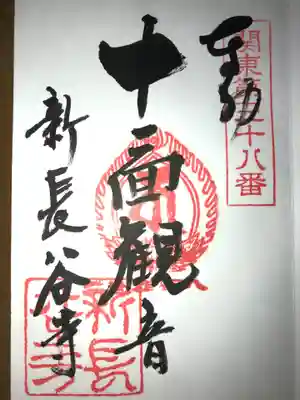 奉拝
関東第 十八番
十一面観音
新長谷寺
新長
谷寺